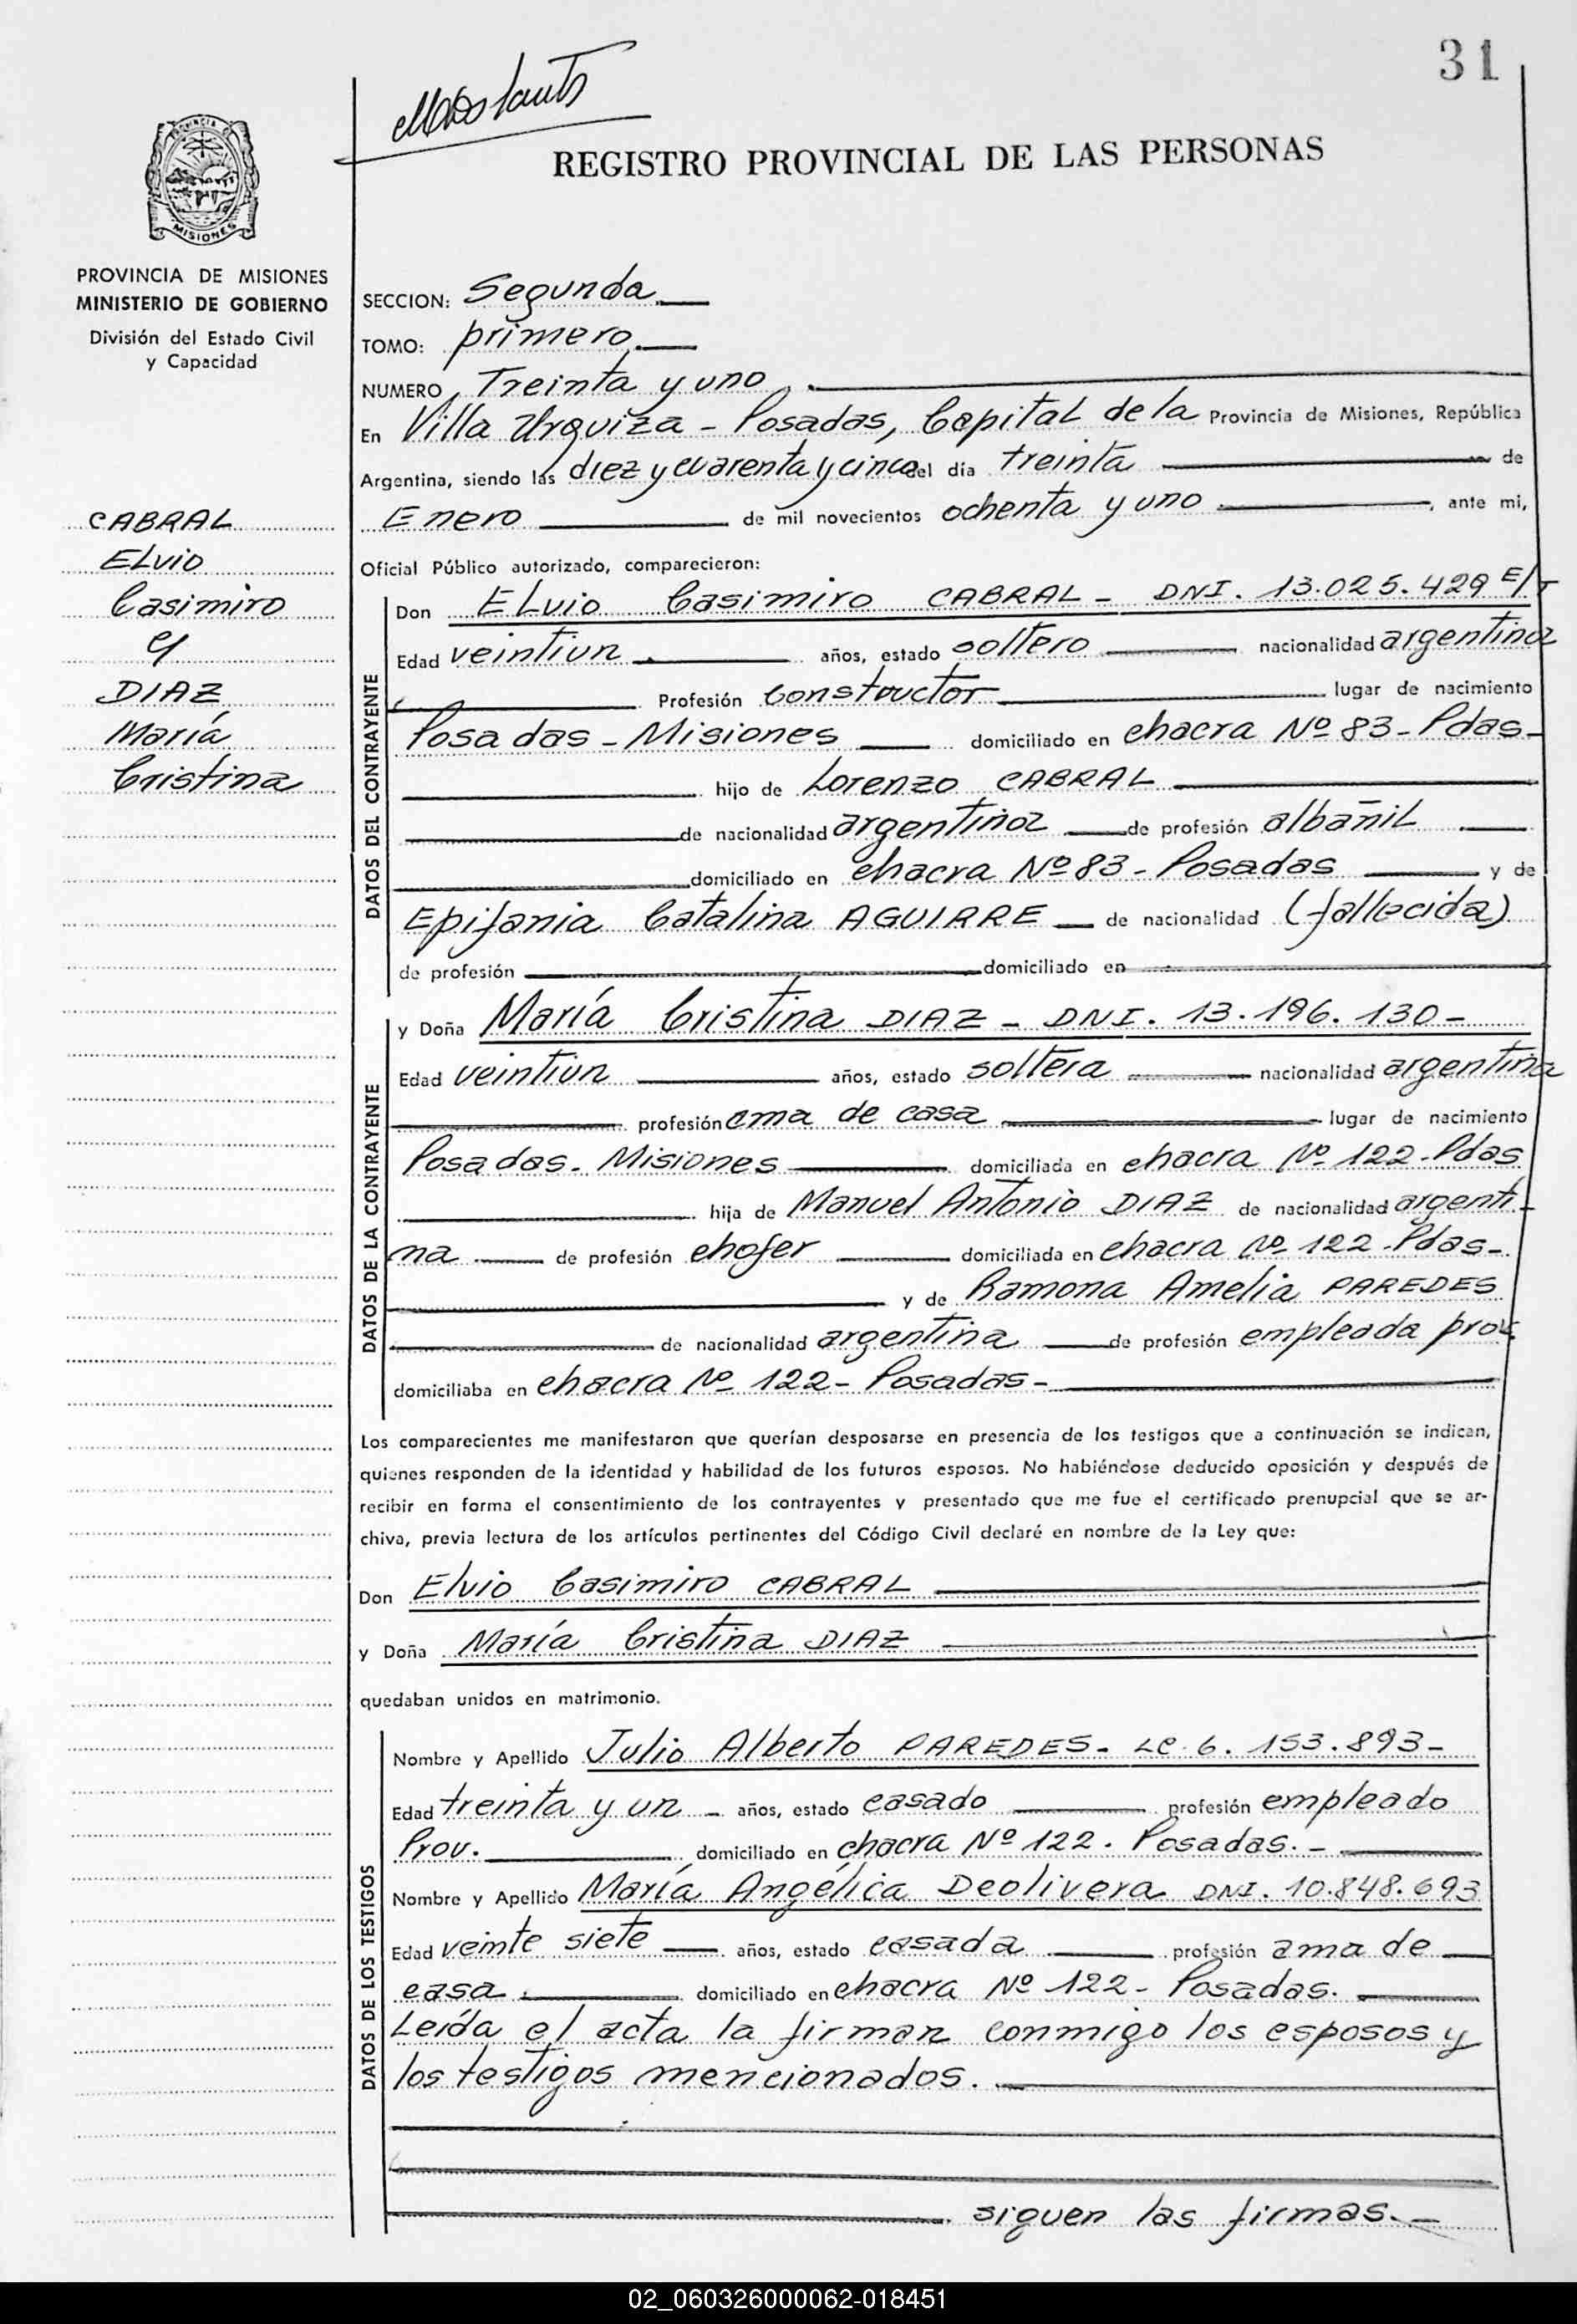 31
REGISTRO PROVINCIAL DE LAS PERSONAS
PROVINCIA DE MISIONES
MINISTERIO DE GOBIERNO
División del Estado Civil
y Capacidad
CABRAL
ELvio
Casimiro
y
DIAZ
María
Cristina
SECCION: Segunda
TOMO: primero
NUMERO Treinta y uno
En Villa Urquiza - Posadas, Capital de la Provincia de Misiones, República
Argentina, siendo las diez y cuarenta y cinco del día treinta de
Enero de mil novecientos ochenta y uno, ante mi,
Oficial Público autorizado, comparecieron:
DATOS DEL CONTRAYENTE
Don ELvio Casimiro CABRAL - DNI. 13.025.429 E/T
Edad veintiun años, estado soltero nacionalidad argentina
Profesión constructor lugar de nacimiento
Posadas - Misiones domiciliado en chacra Nº 83 - Pdas-
hijo de Lorenzo CABRAL
de nacionalidad argentina de profesión albañil
domiciliado en chacra Nº 83 - Posadas y de
Epifania Catalina AGUIRRE de nacionalidad (fallecida)
de profesión domiciliado en
DATOS DE LA CONTRAYENTE
y Doña María Cristina DIAZ - DNI. 13.196.130-
Edad veintiun años, estado soltera nacionalidad argentina
profesión ama de casa lugar de nacimiento
Posadas. Misiones domiciliada en chacra Nº 122 - Pdas
hija de Manuel Antonio DIAZ de nacionalidad argenti-
na de profesión chofer domiciliada en chacra Nº 122 - Pdas-
y de Ramona Amelia PAREDES
de nacionalidad argentina de profesión empleada prov.
domiciliaba en chacra Nº 122 - Posadas-
Los comparecientes me manifestaron que querían desposarse en presencia de los testigos que a continuación se indican,
quienes responden de la identidad y habilidad de los futuros esposos. No habiéndose deducido oposición y después de
recibir en forma el consentimiento de los contrayentes y presentado que me fue el certificado prenupcial que se ar-
chiva, previa lectura de los artículos pertinentes del Código Civil declaré en nombre de la Ley que:
Don Elvio Casimiro CABRAL
y Doña María Cristina DIAZ
quedaban unidos en matrimonio.
DATOS DE LOS TESTIGOS
Nombre y Apellido Julio Alberto PAREDES - LE. 6.153.893-
Edad treinta y un - años, estado casado profesión empleado
Prov. domiciliado en chacra Nº 122. Posadas. -
Nombre y Apellido María Angélica Deolivera DNI. 10.848.693
Edad veinte siete años, estado casada profesión ama de
casa domiciliado en chacra Nº 122 - Posadas.
Leída el acta la firman conmigo los esposos y
los testigos mencionados.
siguen las firmas.-
02_060326000062-018451